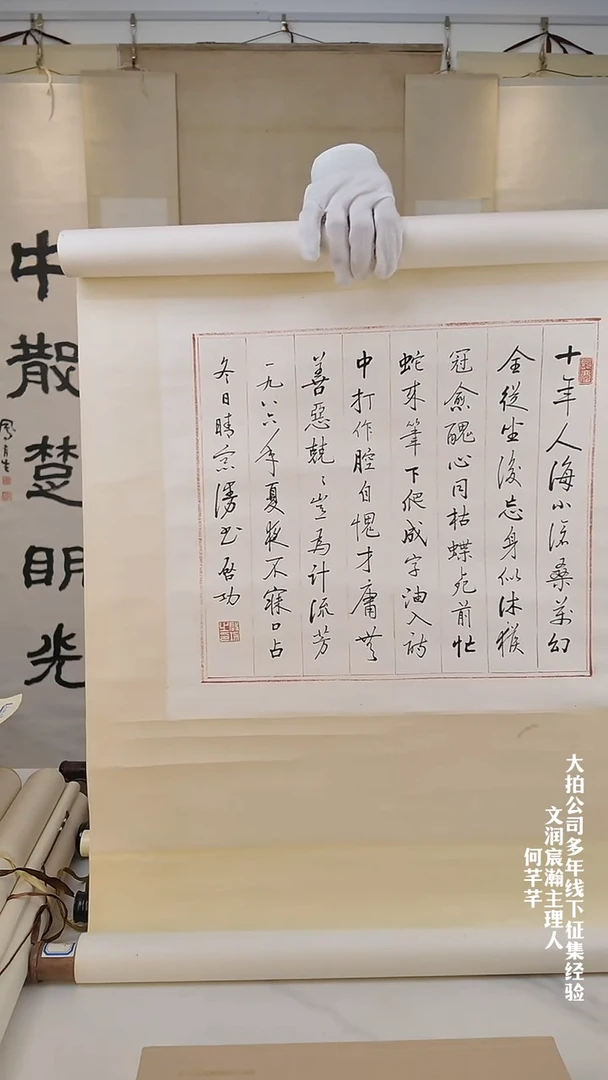 十年人海小滄桑萬幻
全從坐後忘身似沐猴
冠愈醜心同枯蝶死前忙
蛇來筆下爬成字油入詩
中打作腔自愧才庸無
善惡兢〻豈為計流芳
一九八六年夏夜不寐口占
冬日晴窗漫書 啓功
中散楚明光
大拍公司多年线下征集经验
文润宸瀚主理人
何芊芊